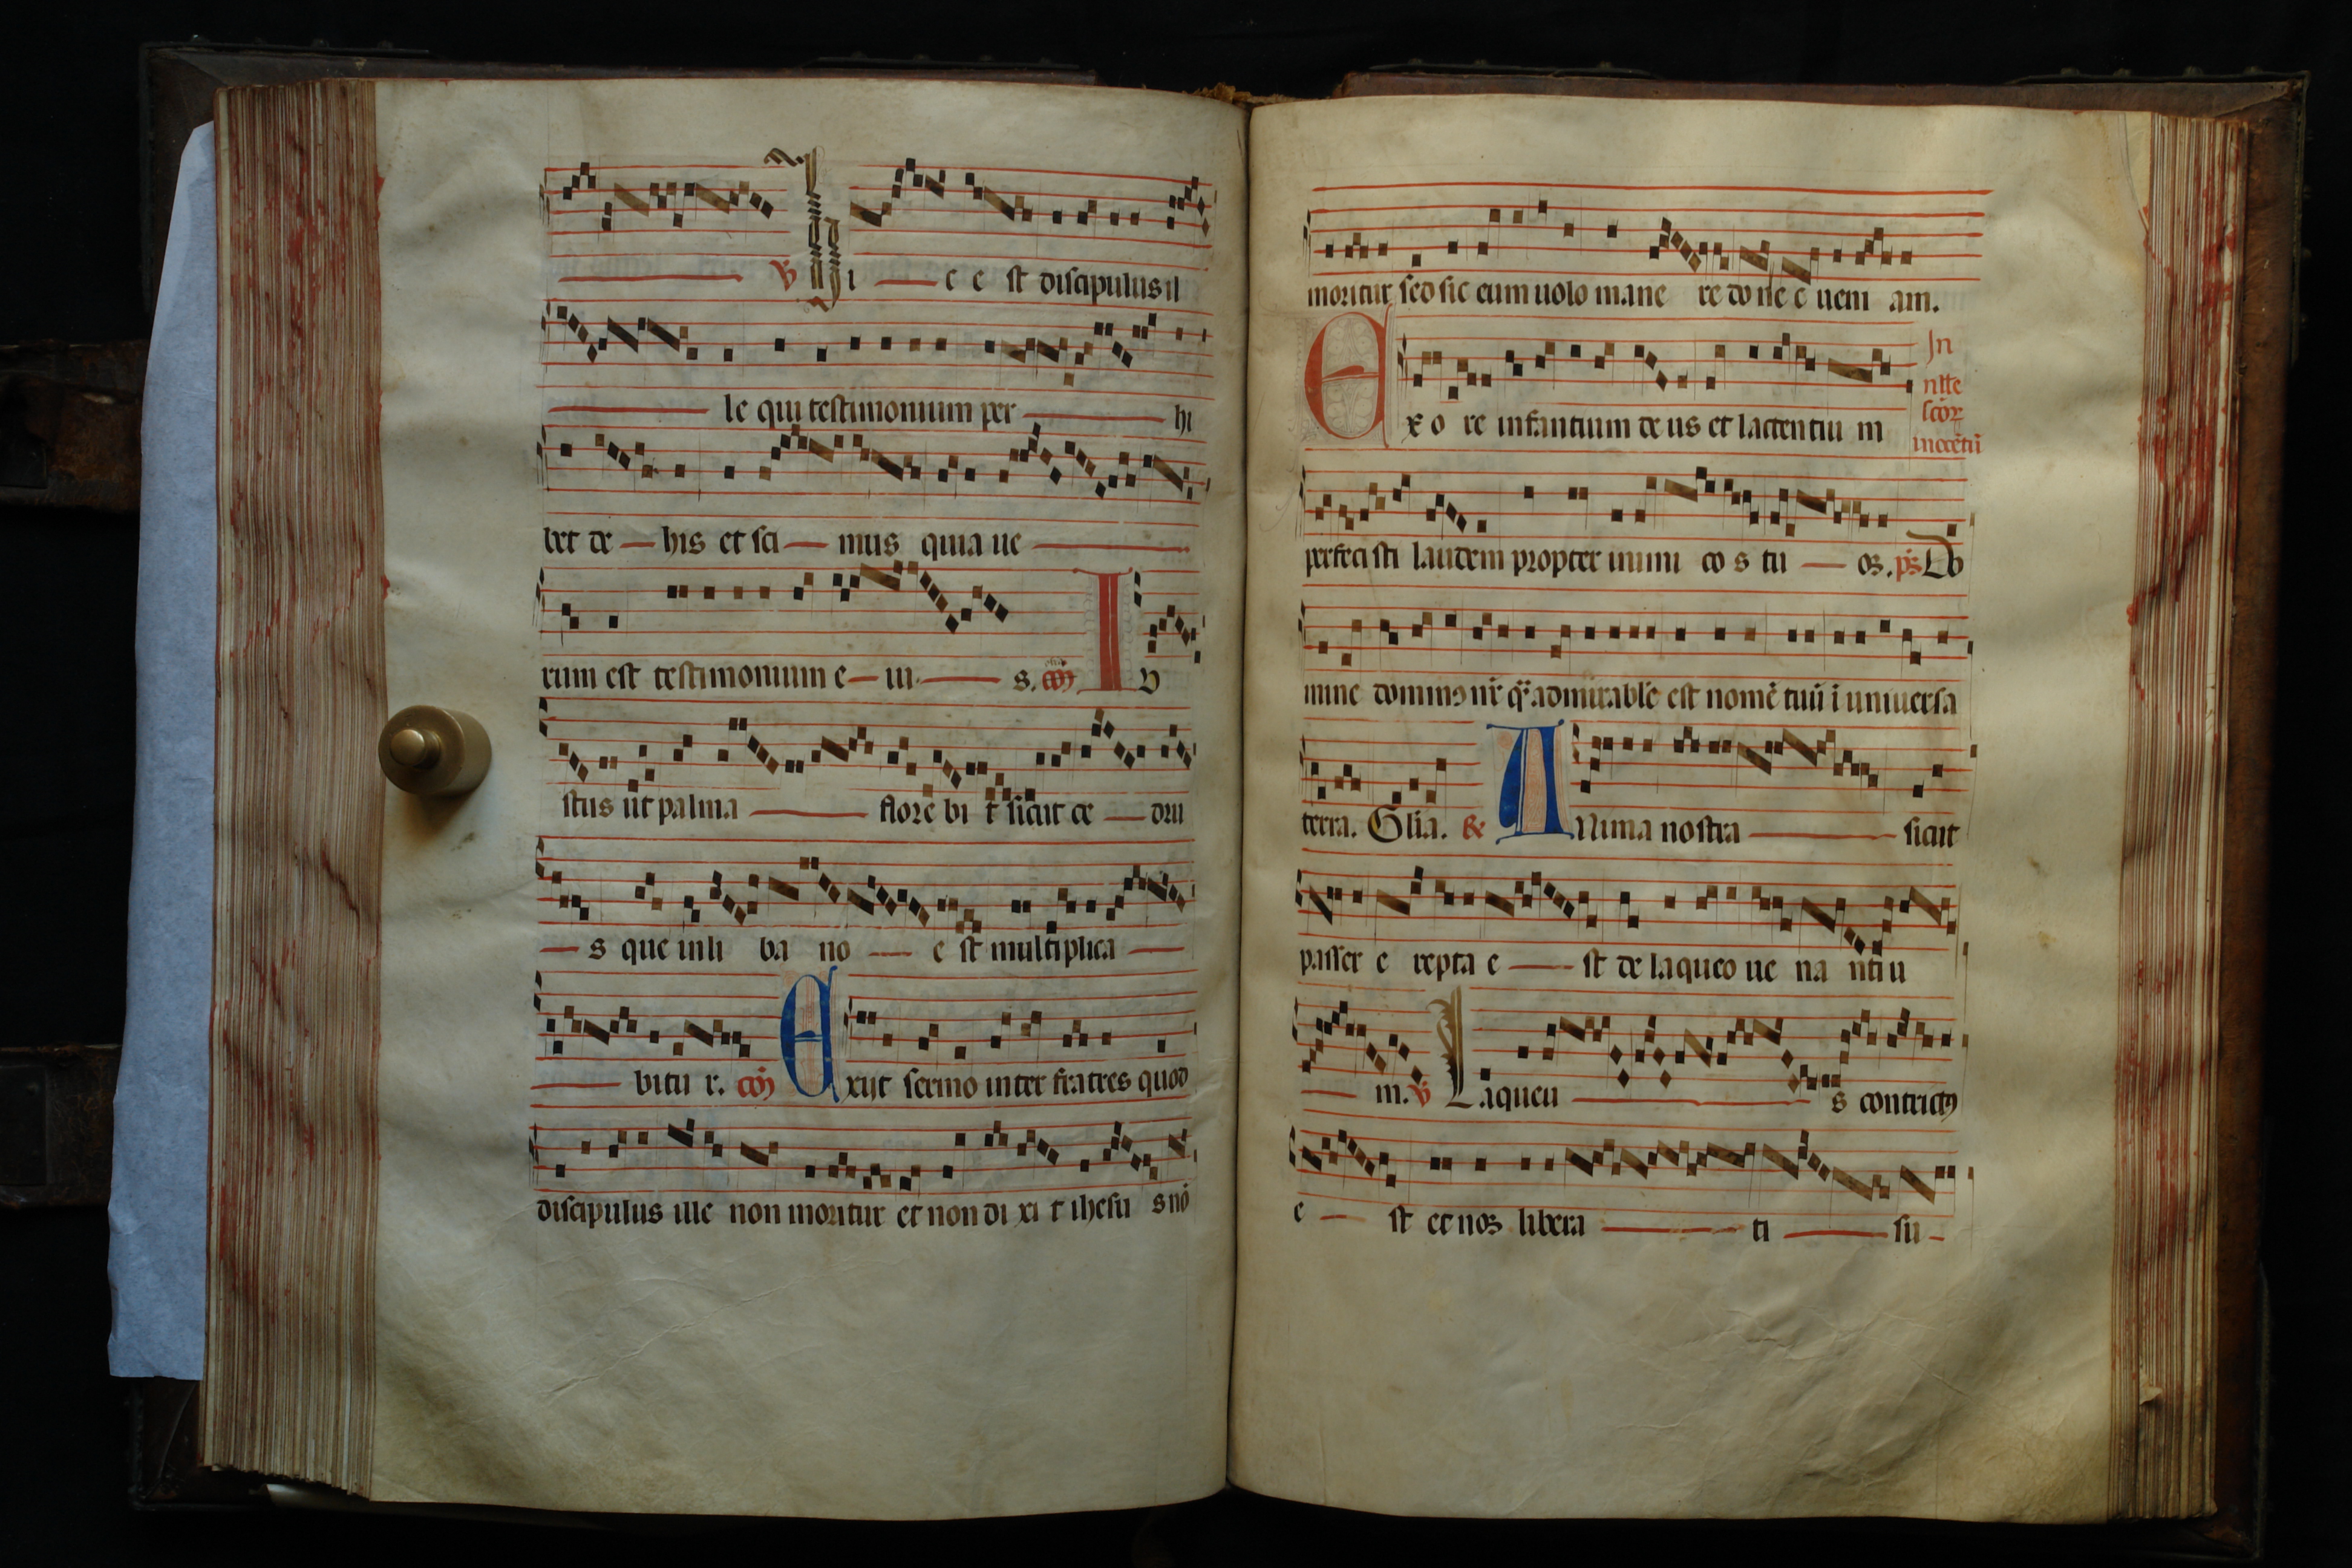 ℣ Hi c e st discipulus il
le qui testimonium per hi
bet de his et sci mus quia ue
rum est testimonium e iu s. I V
stus ut palma flore bi t sicut ce dru
s que in li ba no e st multiplica
bitu r. com̄ Exijt sermo inter fratres quod
discipulus ille non moritur et non di xi t ihesu s nō
moritur sed sic eum uolo mane re do ne c ueni am.
In
nlłe
scōꝝ
innocētū
Ex o re infantium de us et lactentiu m
perfeci sti laudem propter inimi co s tu os. p̄s Do
mine dominus nr̄ q̄ admirabile est nomē tuū ī uniuersa
terra. Gl̄ia. ℟ ANima nostra sicut
passer e repta e st de laqueo ue na ntiu
m. ℣ Laqueu s contritꝰ
e st et nos libera ti su